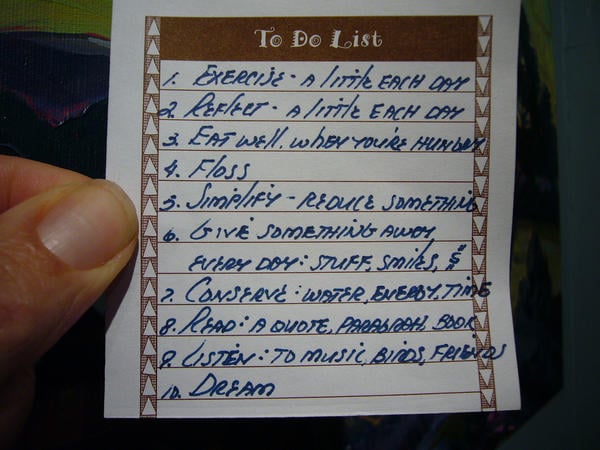 To Do List
1. EXERCISE - A little EACH DAY
2. REFLECT - A little EACH DAY
3. EAT WELL, WHEN YOU'RE HUNGRY
4. FLOSS
5. SIMPLIFY - REDUCE SOMETHING
6. GIVE SOMETHING AWAY
EVERY DAY: STUFF, SMILES, $
7. CONSERVE: WATER, ENERGY, TIME
8. READ: A QUOTE, PARAGRAPH, BOOK
9. LISTEN: TO MUSIC, BIRDS, FRIENDS
10. DREAM